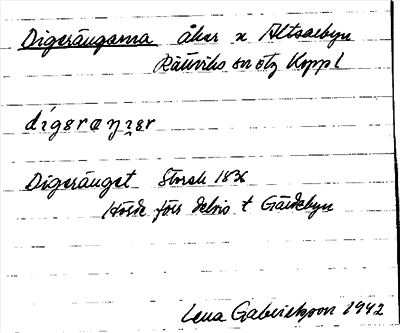 Digerängarna åker n Altsarbyn
Rättviks sn Koppl
dígerøŋɪ̯ər
Digeränget Storsk 1836
Hörde förr delvis t Gärdebyn
Lena Gabrielsson 1942